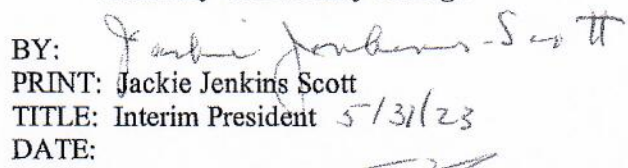 BY: Jackie Jenkins-Scott
PRINT: Jackie Jenkins Scott
TITLE: Interim President 5/31/23
DATE: